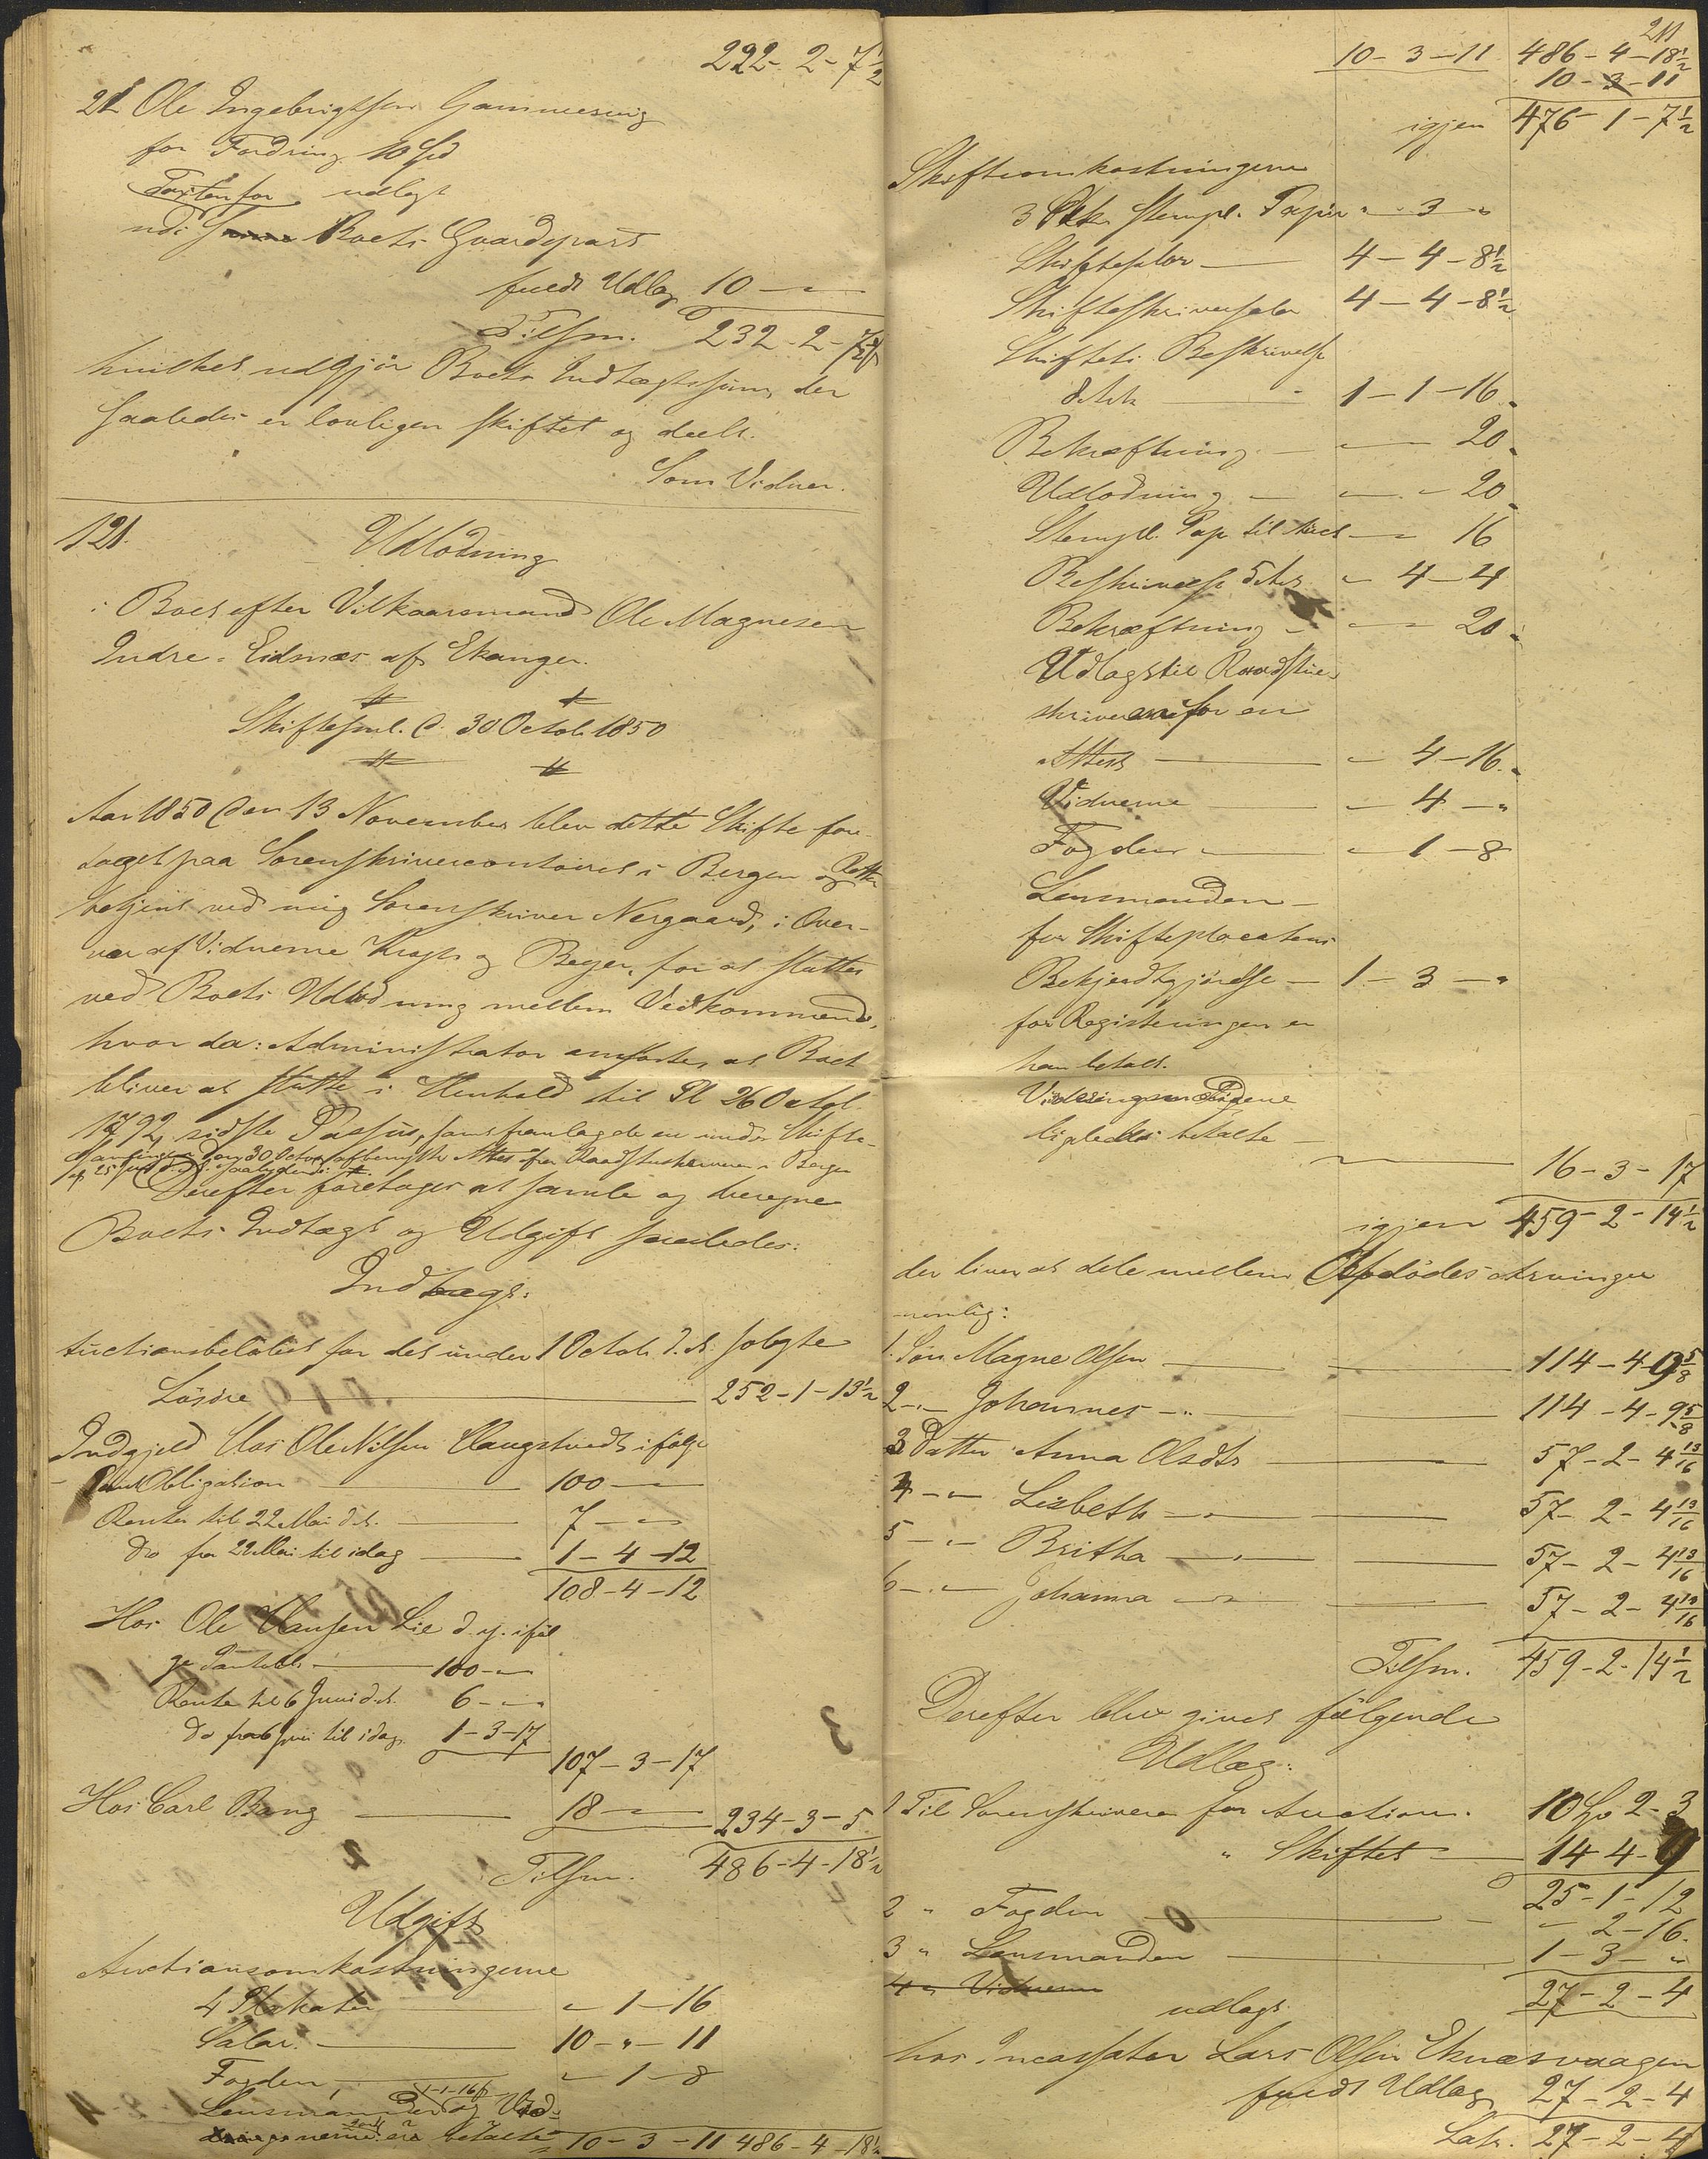 222 - 2 - 7½
21 Ole Ingebrigtsen Gammersvig
for Fordring 10 Spd
udlagt
udi Boets Gaardepart
fuldt Udlæg 10 - " - "
Tilsm. 232 - 2 - 7½
hvilket udgjør Boets Indtægtssum, der
saaledes er lovligen skiftet og deelt.
Som Vidner.
121.
Udlodning
i Boet efter Vilkaarsmand Ole Magnesen
Indre-Eidsnæs af Ekanger.
Skiftesml. d. 30 Octob. 1850
Aar 1850 den 13 November blev dette Skifte fore-
taget paa Sorenskrivercontoiret i Bergen og Retten
betjent ved mig Sorenskriver Nergaard, i Over-
vær af Vidnerne Krogh og Beyer, for at sluttes
ved Boets Udlodning mellem Vedkommende,
hvor da: Administrator anførte, at Boet
bliver at slutte i Henhold til Pl 26 Octob.
1792, sidste Passus, samt fremlagde en under Skifte-
samlingen den 30 Octob. Attest fra Raadstueskriveren i Bergen
Derefter foretoges at samle og beregne
Boets Indtægt og Udgift saaledes:
Indtægt:
Auctionsbeløbet for det under 1 Octob. d. A. solgte
Løsøre 252 - 1 - 13½
Indgjeld Hos Ole Nilsen Haugstvedt ifølge
Pant Obligation 100 - "
Renter til 22 Mai d. A. 7 - "
Do fra 22 Mai til idag 1 - 4 - 12
108 - 4 - 12
Hos Ole Hansen Lie d. y. iføl
ge Pantobl. 100 - "
Rente til 6 Juni d. A. 6 - "
Do fra 6 Juni til idag 1 - 3 - 17
107 - 3 - 17
Hos Carl Bang 18 - " 234 - 3 - 5
Tilsm. 486 - 4 - 18½
Udgift
Auctionsomkostningerne
4 Plakater " - 1 - 16
Salær. 10 - " - 11
Fogden, " - 1 - 8
1-1-16 s
Lensmanden og Vurd-
ere betalte 10 - 3 - 11 486 - 4 - 18½
211
10 - 3 - 11 486 - 4 - 18½
10 - 3 - 11
igjen 476 - 1 - 7½
Skifteomkostningerne
3 Ark Stempl. Papir " - 3 - "
Skiftesalær 4 - 4 - 8½
Skifteskriversalær 4 - 4 - 8½
Skiftets Beskrivelse
8 Ark 1 - 1 - 16
Bekræftning " - 20
Udlodning " - " - 20
Stempl. Pap til Ext. " 16
Beskrivelse 5 Ark " 4 - 4
Bekræftning " - 20
Udlagt til Raadstue-
skriveren for en
Attest " 4 - 16
Vidnerne " 4 - "
Fogden " 1 - 8
Lensmanden
for Skifteplacatens
Bekjendtgjørelse 1 - 3 - "
for Registeringen er
han betalt.
Vurderingsmændene
ligeledes betalte
16 - 3 - 17
igjen 459 - 2 - 14½
der bliver at dele mellem Afdødes Arvinger
nemlig:
1. Søn Magne Olsen 114 - 4 - 9⅝
2 - " Johannes - " 114 - 4 - 9⅝
3 Datter Anna Olsdtr 57 - 2 - 4 13/16
4 - " Lisbeth - " 57 - 2 - 4 13/16
5 - " Britha - " 57 - 2 - 4 13/16
6 - " Johanna - " 57 - 2 - 4 13/16
Tilsm. 459 - 2 - 14½
Derefter blev givet følgende
Udlæg:
1 Til Sorenskriveren for Auction. 10 Sp 2 - 3
" Skiftet 14 - 4 - 9
25 - 1 - 12
2 " Fogden " - 2 - 16.
3 " Lensmanden 1 - 3 - "
4 " Vidnerne 27 - 2 - 4
udlagt
hos Incassator Lars Olsen Eknæsvaagen
fuldt Udlæg 27 - 2 - 4
Lats. 27 - 2 - 4